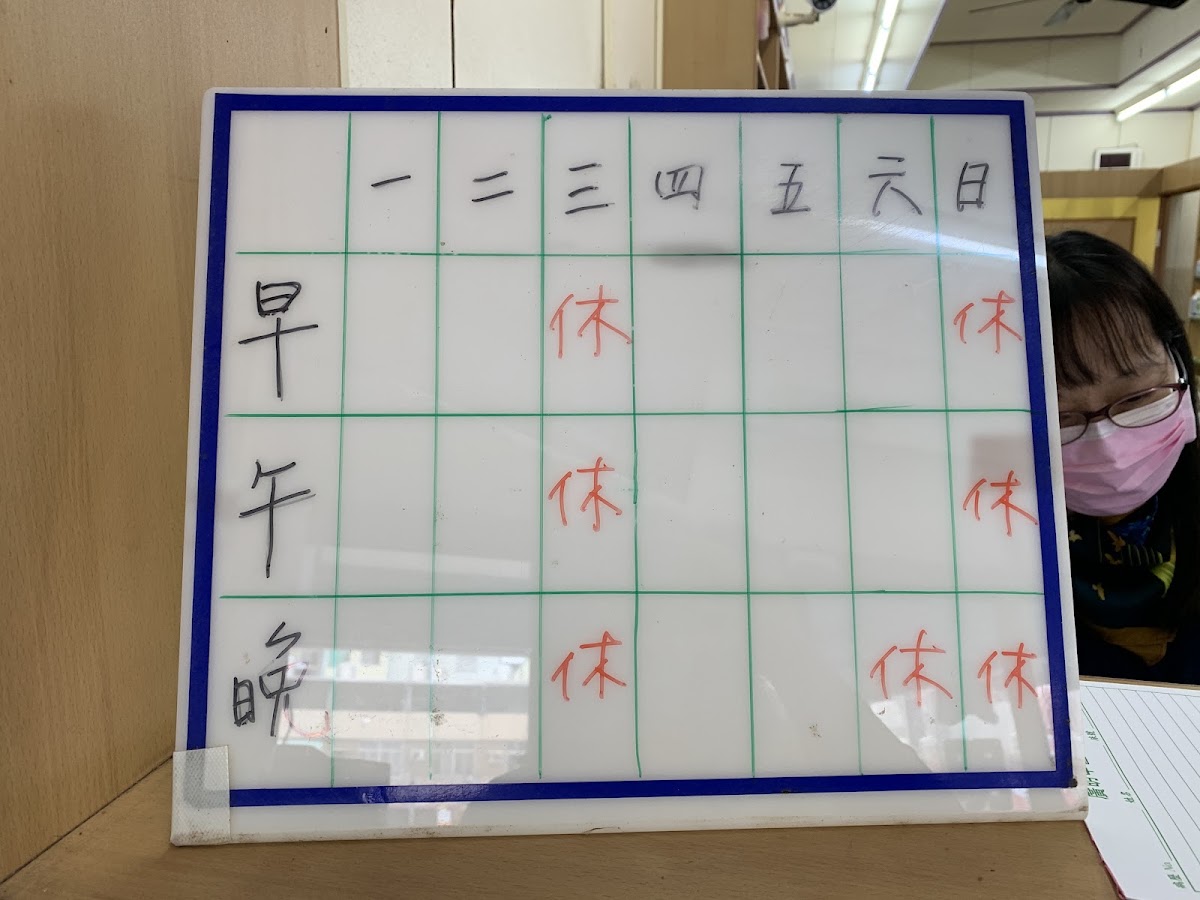 一 二 三 四 五 六 日
早 休 休
午 休 休
晚 休 休 休